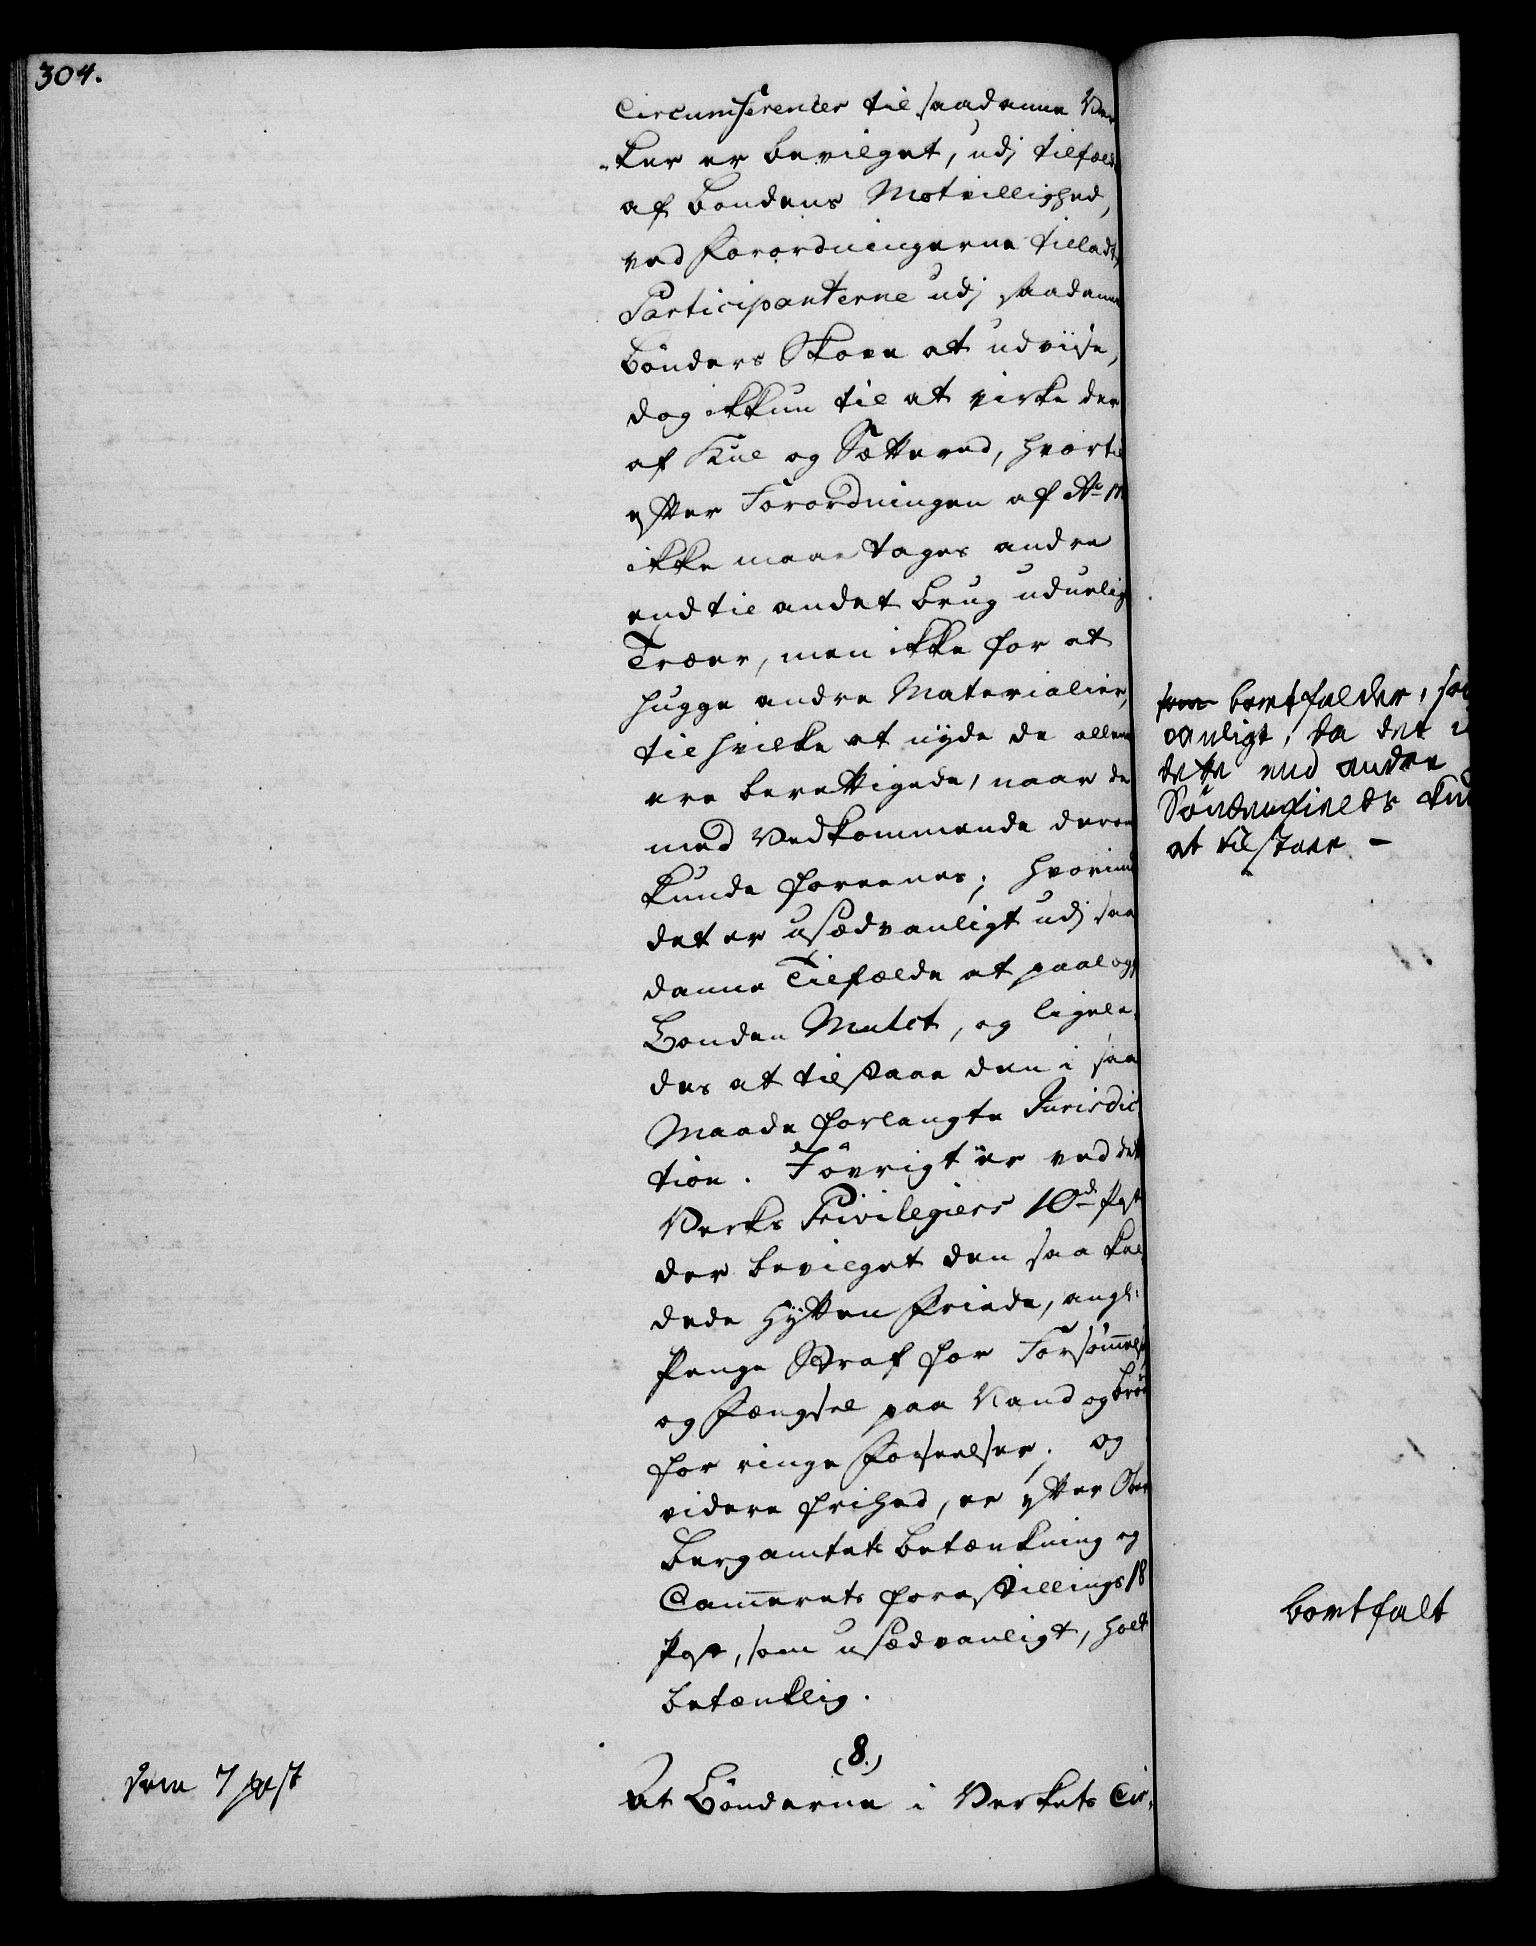 304.
Circumferencer til saadanne Ver
ker er bevilget, udj tilfæld
af Bondens Motvillighed,
ved Forordningerne tilladt
Participanterne udj saadanne
Bönders Skove at udviise,
dog ikkun til at virke der
af Kul og Sætteved, hvortil
efter Forordningen af Ao
ikke maae tages andre
end til andet brug uduelig
Træer, men ikke for at
hugge andre Materialier,
til hvilke at nyde de allene
ere berettigede, naar de
med Vedkommende derom
kunde foreenes; hvorimod
det er usædvanligt udj saa
danne Tilfælde at paalegge
Bonden Mulct, og ligele-
des at tilstaae den i saa
Maade forlangte Jurisdic
tion. Jövrigt er ved dette
Verks Privilegiers 10de Post
der bevilget den saa kal
dede Hytten Friede, angl:
Penge Straf for Forsömmelse
og Fængsel paa Vand og bröd
for ringe Forseelser; og
videre frihed, er efter Ober
Bergamtets Betænkning og
Cammerets forestillings 18
Post, som usædvanligt, holt
betænklig.
(8.)
At Bönderne i Verkets Cir-
som 7 post
som bortfalder, saa
vanligt, da det
dette end andre
Söndenfields
at tilstaae -
bortfalt